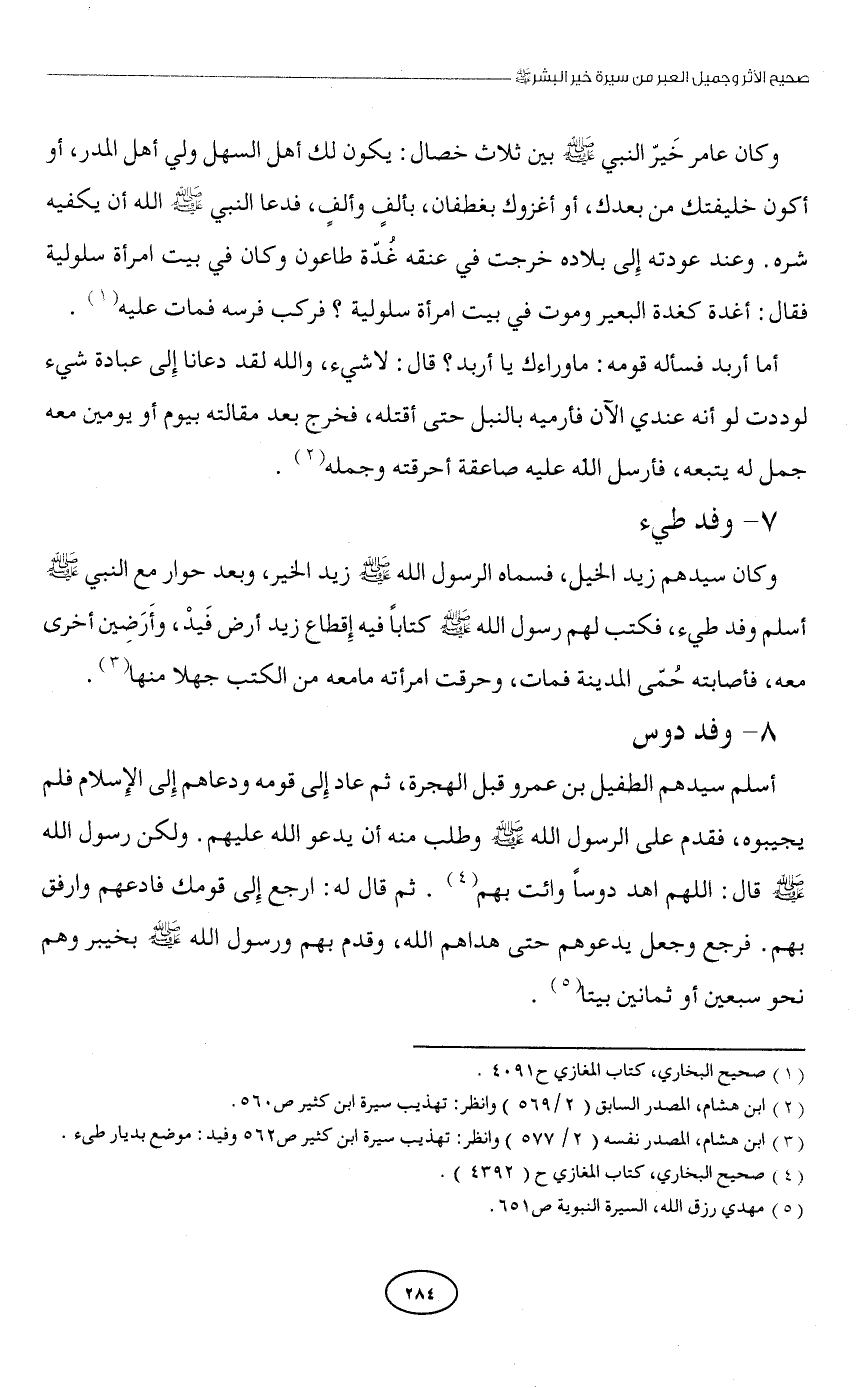 صحيح الأثر وجميل العبر من سيرة خير البشر ﷺ
وكان عامر خَيرّ النبي ﷺ بين ثلاث خصال: يكون لك أهل السهل ولي أهل المدر، أو
أكون خليفتك من بعدك، أو أغزوك بغطفان، بألفٍ وألفٍ، فدعا النبي ﷺ الله أن يكفيه
شره. وعند عودته إلى بلاده خرجت في عنقه غُدّة طاعون وكان في بيت امرأة سلولية
فقال: أغدة كغدة البعير وموت في بيت امرأة سلولية ؟ فركب فرسه فمات عليه(١) .
أما أربد فسأله قومه: ماوراءك يا أربد؟ قال: لاشيء، والله لقد دعانا إلى عبادة شيء
لوددت لو أنه عندي الآن فأرميه بالنبل حتى أقتله، فخرج بعد مقالته بيوم أو يومين معه
جمل له يتبعه، فأرسل الله عليه صاعقة أحرقته وجمله(٢) .
٧- وفد طيء
وكان سيدهم زيد الخيل، فسماه الرسول الله ﷺ زيد الخير، وبعد حوار مع النبي ﷺ
أسلم وفد طيء، فكتب لهم رسول الله ﷺ كتاباً فيه إقطاع زيد أرض فَيدْ، وأَرَضِين أخرى
معه، فأصابته حُمّى المدينة فمات، وحرقت امرأته مامعه من الكتب جهلا منها(٣).
٨- وفد دوس
أسلم سيدهم الطفيل بن عمرو قبل الهجرة، ثم عاد إلى قومه ودعاهم إلى الإسلام فلم
يجيبوه، فقدم على الرسول الله ﷺ وطلب منه أن يدعو الله عليهم. ولكن رسول الله
ﷺ قال: اللهم اهد دوساً وائت بهم(٤) . ثم قال له: ارجع إلى قومك فادعهم وارفق
بهم. فرجع وجعل يدعوهم حتى هداهم الله، وقدم بهم ورسول الله ﷺ بخيبر وهم
نحو سبعين أو ثمانين بيتا(٥) .
(١) صحيح البخاري، كتاب المغازي ح٤٠٩١ .
(٢) ابن هشام، المصدر السابق ( ٢/ ٥٦٩ ) وانظر: تهذيب سيرة ابن كثير ص٥٦٠.
(٣) ابن هشام، المصدر نفسه ( ٢/ ٥٧٧ ) وانظر: تهذيب سيرة ابن كثير ص٥٦٢ وفيد: موضع بديار طيء .
(٤) صحيح البخاري، كتاب المغازي ح ( ٤٣٩٢ ) .
(٥) مهدي رزق الله، السيرة النبوية ص٦٥١.
٢٨٤